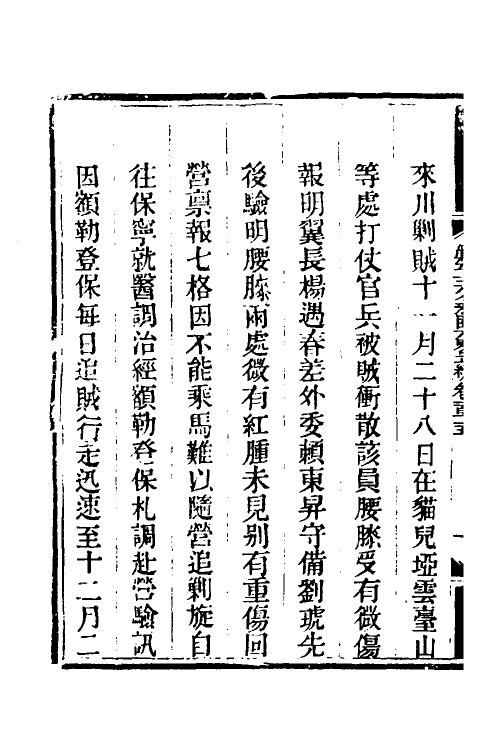 來川剿賊十一月二十八日在貓兒埡雲臺山
等處打仗官兵被賊衝散該員腰膝受有微傷
報明翼長楊遇春差外委賴東昇守備劉琥先
後驗明腰膝兩處微有紅腫未見別有重傷回
營稟報七格因不能乘馬難以隨營追剿旋自
往保寧就醫調治經額勒登保札調赴營驗訊
因額勒登保每日追賊行走迅速至十二月二